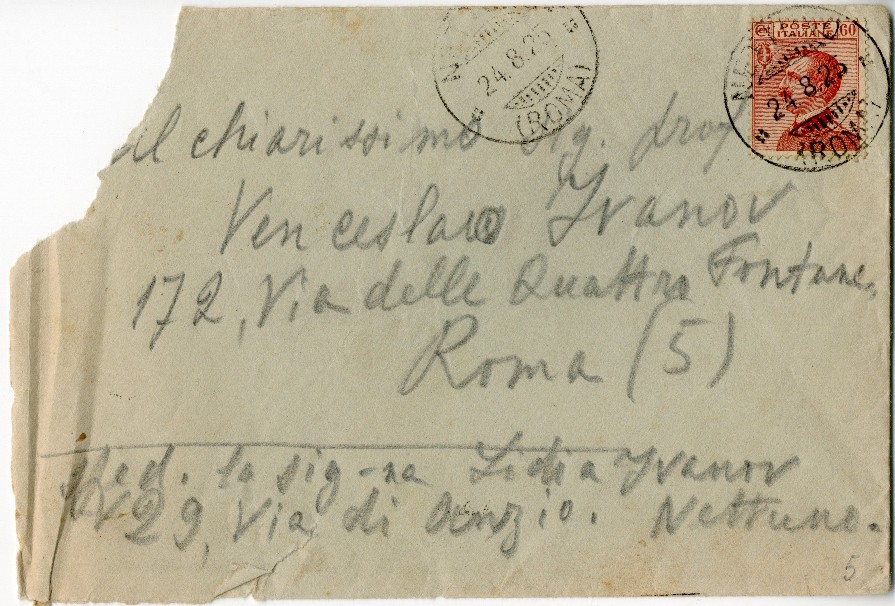 NETTUNO
24.8.25
(ROMA)
POSTE ITALIANE 60
NETTUNO
24.8.25
(ROMA)
Al chiarissimo Sig. prof
Venceslao Ivanov
172, Via delle Quattro Fontane,
Roma (5)
Sped. la sig-na Lidia Ivanov
29, Via di Anzio. Nettuno.
5